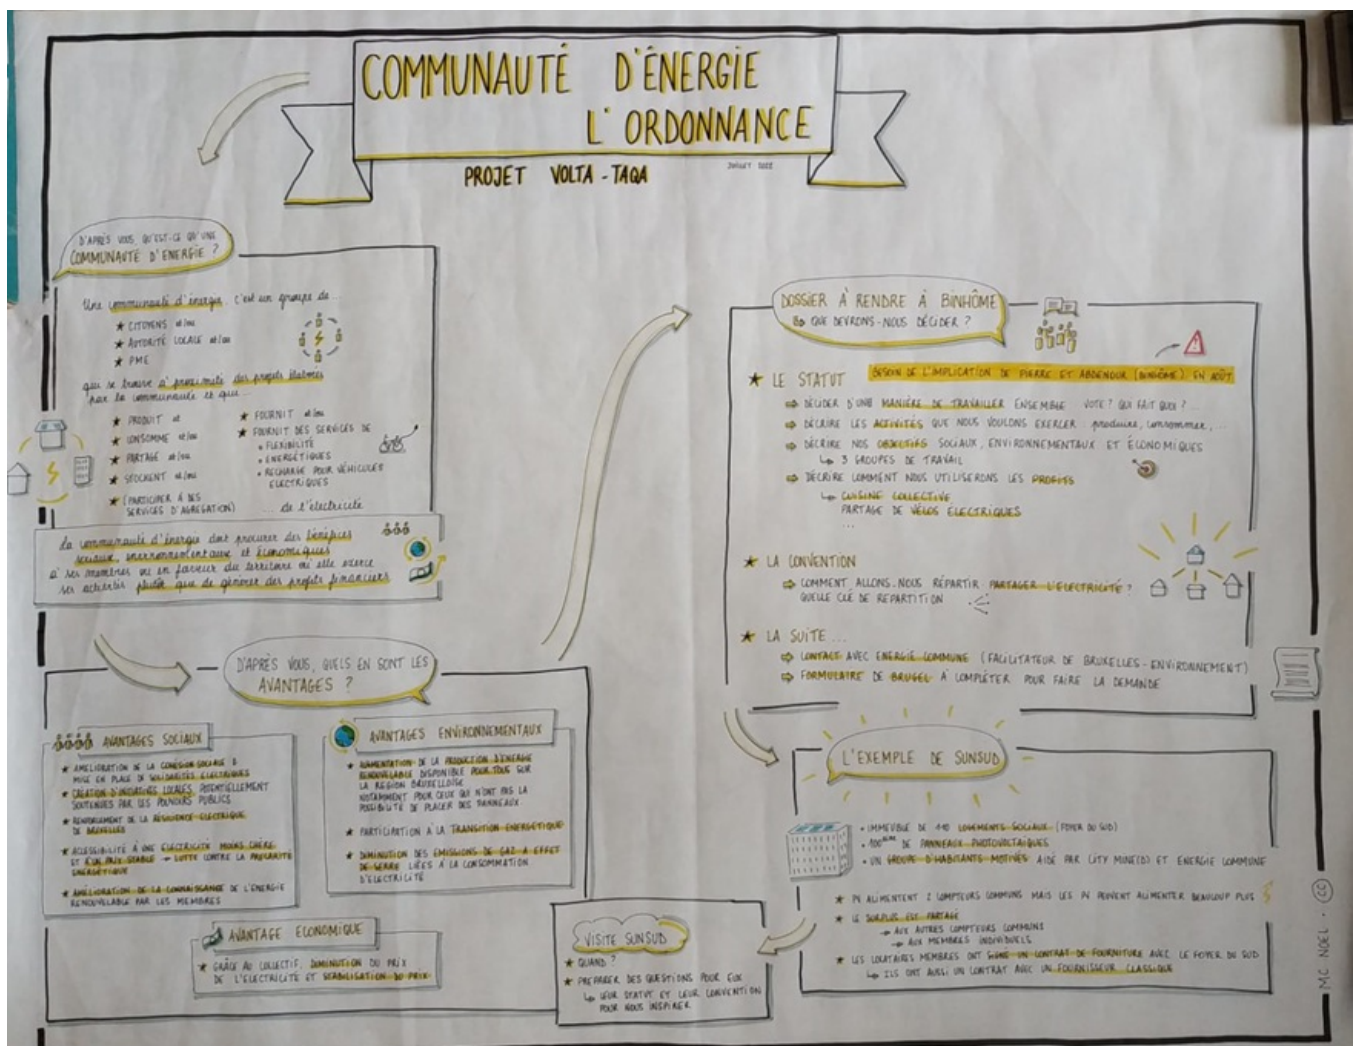 COMMUNAUTÉ D'ÉNERGIE
L'ORDONNANCE
PROJET VOLTA-TAQA
JUILLET 2022
D'APRÈS VOUS, QU'EST-CE QU'UNE
COMMUNAUTÉ D'ENERGIE ?
Une communauté d'énergie, c'est un groupe de...
★ CITOYENS et/ou
★ AUTORITÉ LOCALE et/ou
★ PME
qui se trouve à proximité des projets élaborés
par la communauté et qui...
★ PRODUIT et
★ CONSOMME et/ou
★ PARTAGE et/ou
★ STOCKENT et/ou
★ (PARTICIPER À DES
SERVICES D'AGREGATION)
★ FOURNIT et/ou
★ FOURNIT DES SERVICES DE
• FLEXIBILITÉ
• ENERGÉTIQUES
• RECHARGE POUR VÉHICULES
ELECTRIQUES
... de l'électricité
La communauté d'énergie doit procurer des bénéfices
sociaux, environnementaux et économiques
à ses membres ou en faveur du territoire où elle exerce
ses activités plutôt que de générer des profits financiers
D'APRÈS VOUS, QUELS EN SONT LES
AVANTAGES ?
AVANTAGES SOCIAUX
★ AMÉLIORATION DE LA COHÉSION SOCIALE &
MISE EN PLACE DE SOLIDARITÉS ELECTRIQUES
★ CRÉATION D'INITIATIVES LOCALES POTENTIELLEMENT
SOUTENUES PAR LES POUVOIRS PUBLICS
★ RENFORCEMENT DE LA RÉSILIENCE ELECTRIQUE
DE BRUXELLES
★ ACCESSIBILITÉ À UNE ELECTRICITÉ MOINS CHÈRE
ET À UN PRIX STABLE → LUTTE CONTRE LA PRÉCARITÉ
ENERGÉTIQUE
★ AMÉLIORATION DE LA CONNAISSANCE DE L'ÉNERGIE
RENOUVELABLE PAR LES MEMBRES
AVANTAGES ENVIRONNEMENTAUX
★ AUGMENTATION DE LA PRODUCTION D'ENERGIE
RENOUVELABLE DISPONIBLE POUR TOUS SUR
LA REGION BRUXELLOISE
NOTAMMENT POUR CEUX QUI N'ONT PAS LA
POSSIBILITÉ DE PLACER DES PANNEAUX
★ PARTICIPATION À LA TRANSITION ENERGÉTIQUE
★ DIMINUTION DES ÉMISSIONS DE GAZ À EFFET
DE SERRE LIÉES À LA CONSOMMATION
D'ELECTRICITÉ
AVANTAGE ECONOMIQUE
★ GRÂCE AU COLLECTIF, DIMINUTION DU PRIX
DE L'ELECTRICITÉ ET STABILISATION DU PRIX
DOSSIER À RENDRE À BINHÔME
↳ QUE DEVRONS-NOUS DÉCIDER ?
★ LE STATUT
BESOIN DE L'IMPLICATION DE PIERRE ET ABDENOUR (BINHÔME) EN AOÛT
⇨ DÉCIDER D'UNE MANIÈRE DE TRAVAILLER ENSEMBLE VOTE ? QUI FAIT QUOI ? ...
⇨ DÉCRIRE LES ACTIVITÉS QUE NOUS VOULONS EXERCER : produire, consommer, ...
⇨ DÉCRIRE NOS OBJECTIFS SOCIAUX, ENVIRONNEMENTAUX ET ÉCONOMIQUES
↳ 3 GROUPES DE TRAVAIL
⇨ DÉCRIRE COMMENT NOUS UTILISERONS LES PROFITS
↳ CUISINE COLLECTIVE
PARTAGE DE VÉLOS ELECTRIQUES
...
★ LA CONVENTION
⇨ COMMENT ALLONS-NOUS RÉPARTIR - PARTAGER L'ELECTRICITÉ ?
QUELLE CLÉ DE REPARTITION
★ LA SUITE ...
⇨ CONTACT AVEC ENERGIE COMMUNE (FACILITATEUR DE BRUXELLES-ENVIRONNEMENT)
⇨ FORMULAIRE DE BRUGEL À COMPLÉTER POUR FAIRE LA DEMANDE
L'EXEMPLE DE SUNSUD
• IMMEUBLE DE 110 LOGEMENTS SOCIAUX (FOYER DU SUD)
• 100aine DE PANNEAUX PHOTOVOLTAÏQUES
• UN GROUPE D'HABITANTS MOTIVÉS AIDÉ PAR CITY MINE(D) ET ENERGIE COMMUNE
★ PV ALIMENTENT 2 COMPTEURS COMMUNS MAIS LES PV PEUVENT ALIMENTER BEAUCOUP PLUS
★ LE SURPLUS EST PARTAGÉ
→ AUX AUTRES COMPTEURS COMMUNS
→ AUX MEMBRES INDIVIDUELS
★ LES LOCATAIRES MEMBRES ONT SIGNÉ UN CONTRAT DE FOURNITURE AVEC LE FOYER DU SUD
↳ ILS ONT AUSSI UN CONTRAT AVEC UN FOURNISSEUR CLASSIQUE
VISITE SUNSUD
★ QUAND ?
★ PREPARER DES QUESTIONS POUR EUX
↳ LEUR STATUT ET LEUR CONVENTION
POUR NOUS INSPIRER
MC NOEL · CC